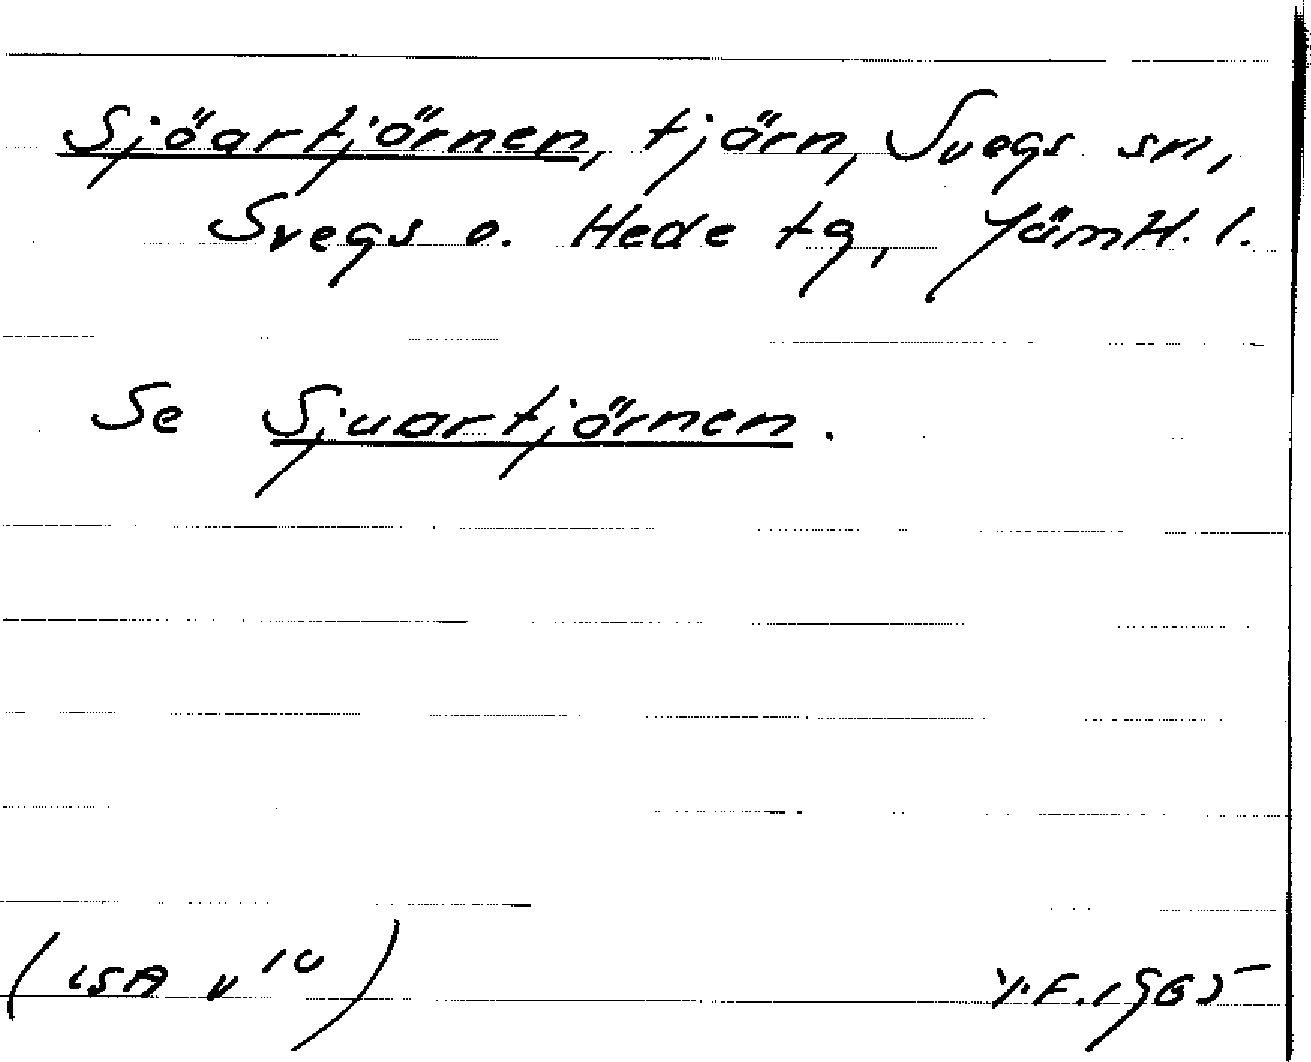 Sjöartjörnen, tjärn, Svegs sn,
Svegs o. Hede tg, Jämtl. l.
Se Sjuartjörnen.
(LSA v 10)
Y.F. 1965